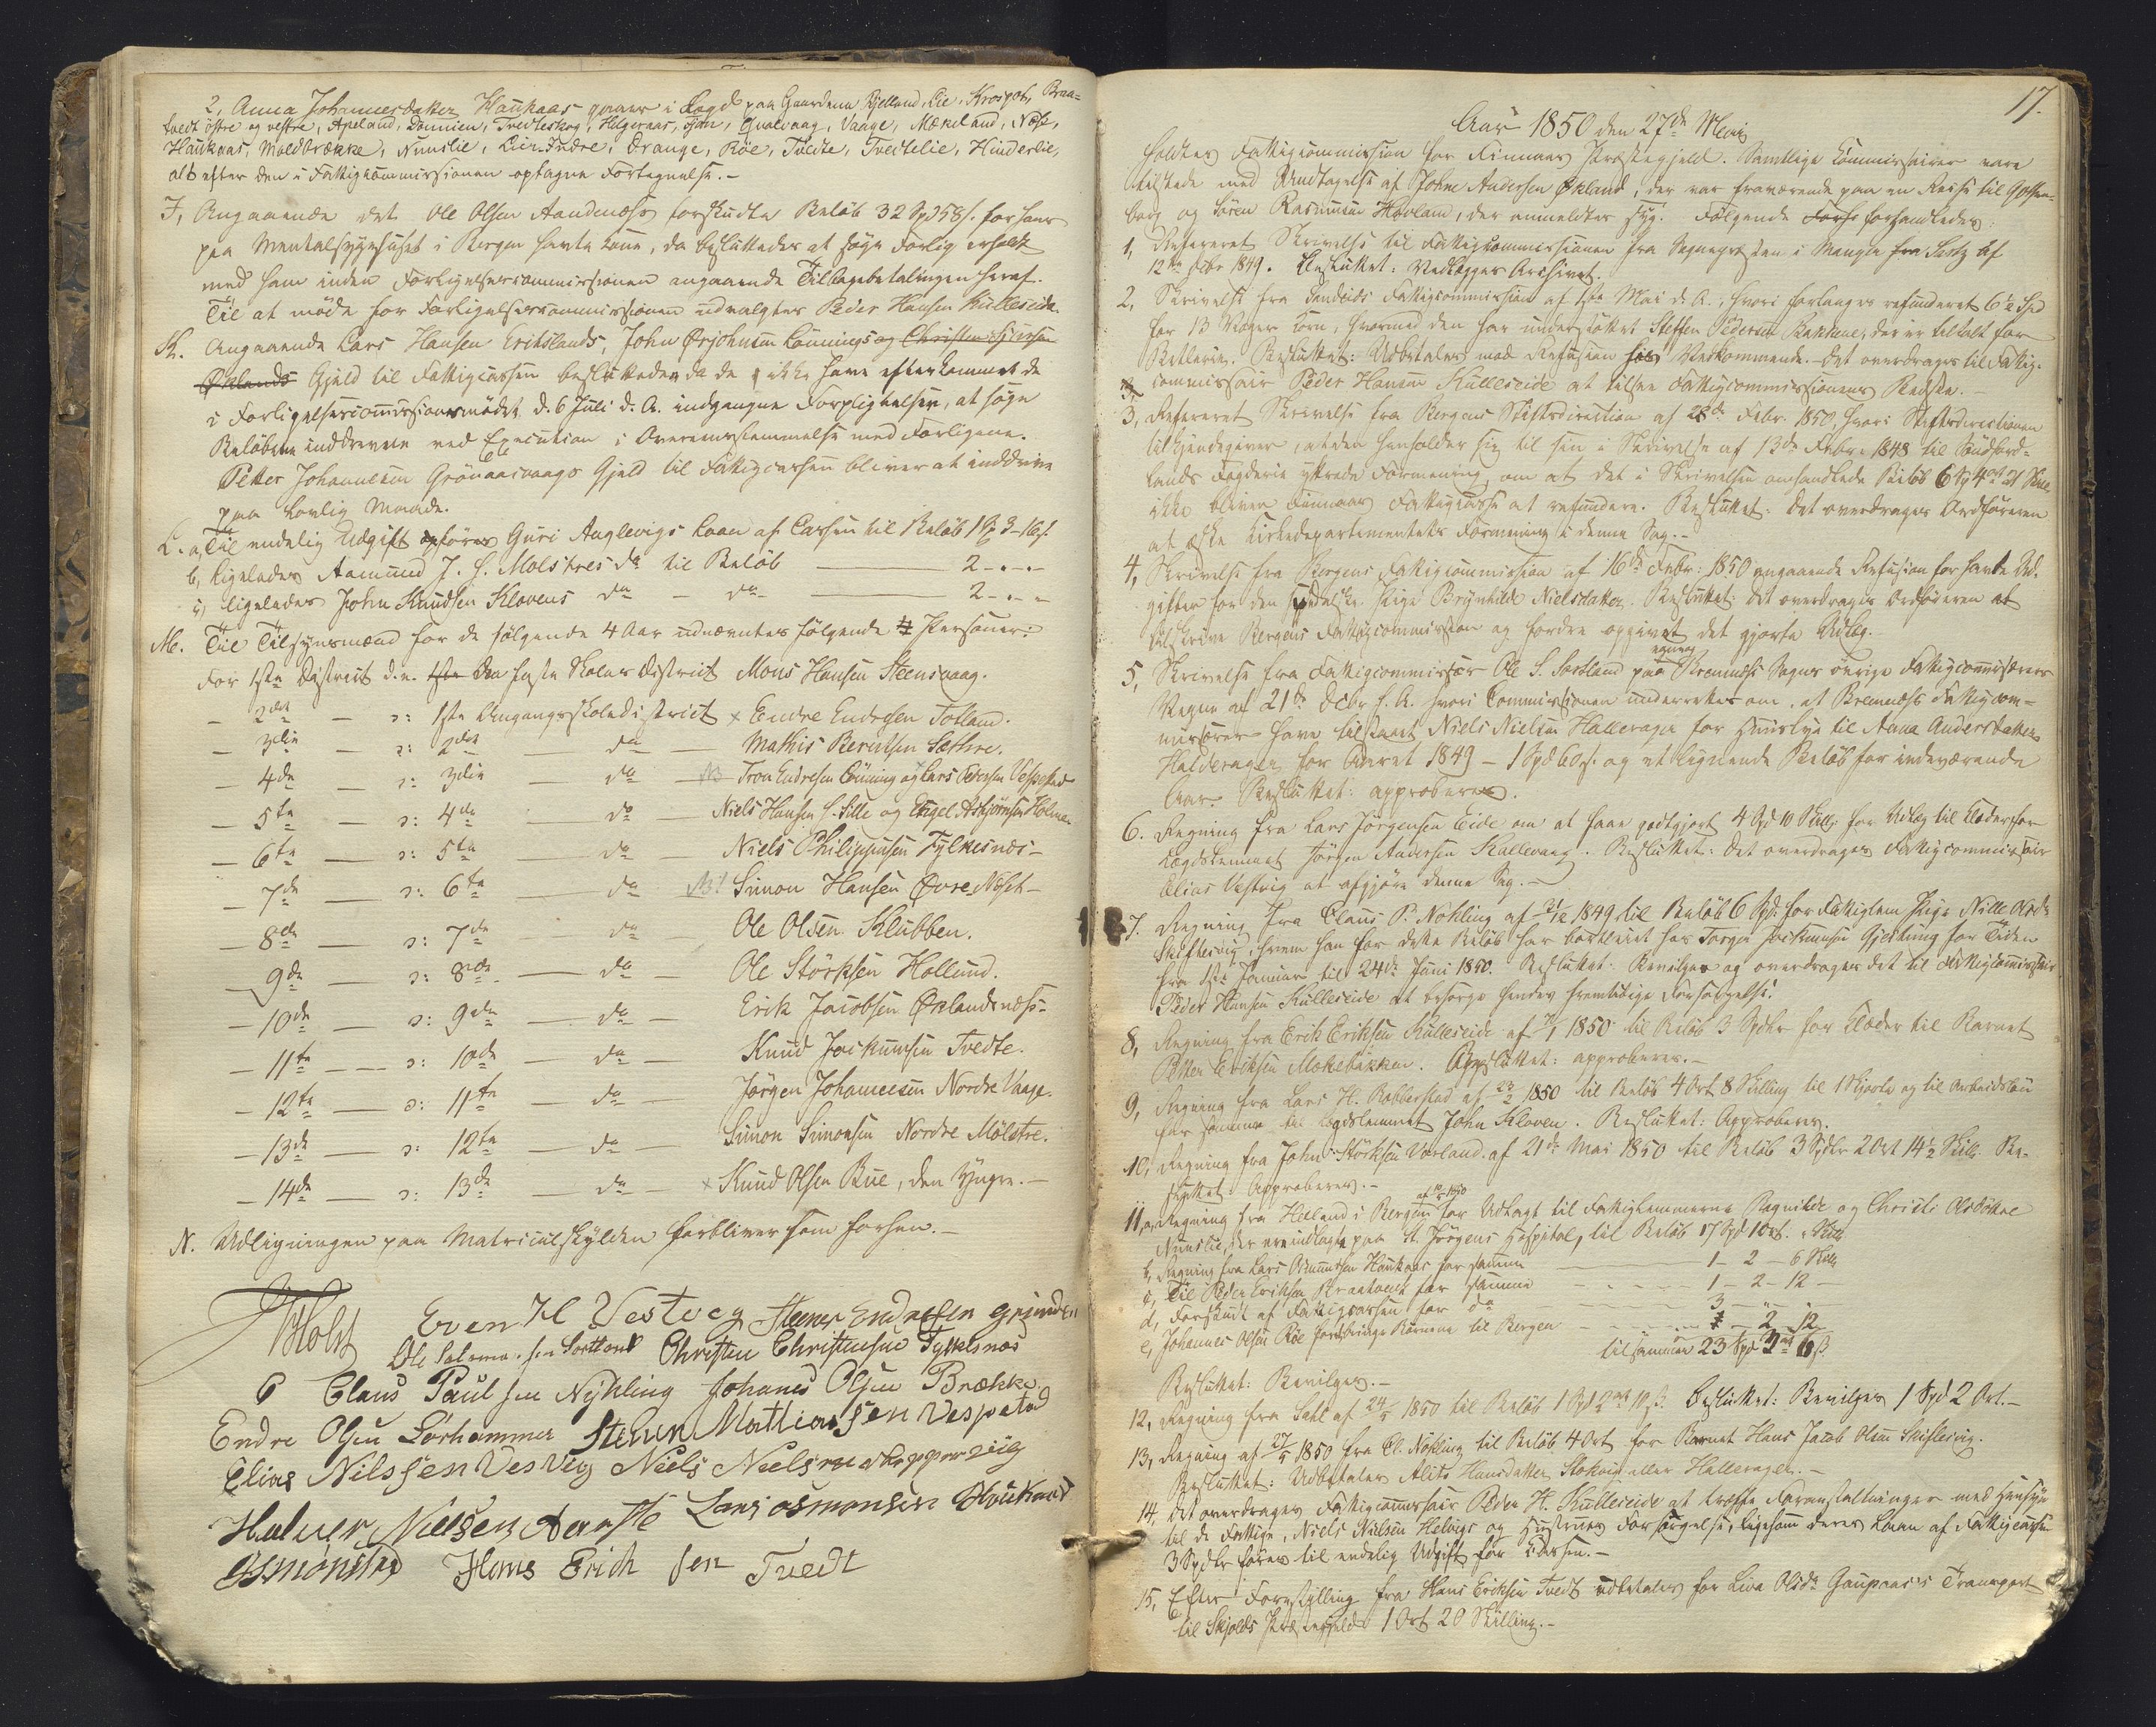 2, Anna Johannesdatter Haukaas gaaer i Lægd paa Gaardene Kjelland, Lie, Krosgot, Braa-
tvedt östre og vestre, Apeland, Dommien, Tvedteskog, Helgeraas, Fan, Hvalvaag, Vaage, Mækeland, Nese,
Haukaas, Moldbrække, Nunslie, Lier-Indre, Orange, Röe, Tvedte, Tvedtelie, Hinderlie,
alt efter den i Fattigkommissionen optagne Fortegnelse.-
I, Angaaende det Ole Olsen Aandenæss forskudte Beløb 32 Spd 58 s. for hans
paa Mentalsygehuset i Bergen havte Kone, da besluttedes at søge Forlig erholdt
med ham inden Forligelsescommissionen angaaende Tilbagebetalingen heraf.
Til at møde for Forligelsescommissionen udvalgtes Peder Hansen Kulleseide.
K. Angaaende Lars Hansen Eriksslands, John Ørjohnsen Lönnings og Christen Iversen
Øklands Gjeld til Fattigcassen besluttedes, da de ikke have efterkommet de
i Forligelsescommissionsmødet d. 6 Juli d. A. indgangne Forpligtelser, at søge
Beløbene inddrevne ved Execution i Overeensstemmelse med Forligene.
Petter Johannesen Grönaasvaags Gjeld til Fattigcassen bliver at inddrive
paa lovlig Maade.
L. a, Til endelig Udgift opføres Guri Auglevigs Laan af Cassen til Beløb 1 Sp 3 - 16 s.
b, ligeledes Aamund J. H. Molstres do til Beløb 2 - " - "
c, ligeledes John Knudsen Klovens do - do 2 - " - "
M. Til Tilsynsmænd for de følgende 4 Aar udnævntes følgende Personer:
For 1ste District d.e. 1ste den faste Skoles District Mons Hansen Steensvaag.
- 2det - ɔ: 1ste Omgangsskoledistrict x Endre Endresen Totland.
- 3die - ɔ: 2det - do - Mathis Berentsen Sæthre.
- 4de - ɔ: 3die - do - NB Tron Endresen Lönning og Lars Pedersen Vespestad
- 5te - ɔ: 4de - do - Niels Hansen H. Sille og Engel Asbjörnsen Holme.
- 6te - ɔ: 5te - do - Niels Philippusen Fylkesnæs -
- 7de - ɔ: 6te - do - NB! Simon Hansen Øvre-Næset -
- 8de - ɔ: 7de - do - Ole Olsen Klubben.
- 9de - ɔ: 8de - do - Ole Störksen Hollund.
- 10de - ɔ: 9de - do - Erik Jacobsen Øklandsnæss -
- 11te - ɔ: 10de - do - Knud Jockumsen Tvedte.
- 12te - ɔ: 11te - do - Jörgen Johannesen Nordre Vaage.
- 13de - ɔ: 12te - do - Simon Simonsen Nordre Mölstre.
- 14de - ɔ: 13de - do - x Knud Olsen Bue, den Yngre. -
N. Udligningen paa Matriculskylden forbliver som forhen. -
Holst Even H Vestveg Steener Endresen Grinden
Ole Salamo. sen Sortland Christen Christensen Fylkesnæs
C Claus Paulsen Nyhling Johanes Olsen Brække
Endre Olsen Sörhammer Steener Mathiassen Vespestad
Elias Nilssen Vestvig Niels Nielsen
Halver Nielsen Lars Osmonsen Houkaas
Osmonsen Hans Erichsen Tvedt
17.
Aar 1850 den 27de Mai
holdtes Fattigcommission for Finnaas Præstegjeld. Samtlige Commissairer vare
tilstede med Undtagelse af John Andersen Økland, der var fraværende paa en Reise til Gothen-
borg og Sören Rasmusen Hovland, der anmeldtes syg. Følgende forhandledes:
1, Refereret Skrivelse til Fattigkommissionen fra Sognepræsten i Manger fra Surtz af
12te Febr 1849. Besluttet: Vedlægges Archivet.
2, Skrivelse fra Søndeids Fattigcommission af 1ste Mai d. A., hvori forlanges refunderet 6½ Spd
for 13 Voger Korn, hvormed den har understøttet Steffen Pedersen Bakkene, der er tiltalt for
Betlerie. Besluttet: Udbetales mod Refusion hos Vedkommende. - Det overdrages til Fattig-
commissair Peder Hansen Kulleseide at tilsee Fattigcommissionens Bedste. -
3, Refereret Skrivelse fra Bergens Stiftsdirection af 28de Febr. 1850, hvori Stiftsdirectionen
tilkjendegiver, at den henholder sig til sin i Skrivelse af 13de Febr. 1848 til Söndhord-
lands Fogderie yttrede Formening, om at det i Skrivelsen omhandlede Beløb 6 Sp 4 ort 21 Skill.
ikke bliver Finnaas Fattigkasse at refundere. Besluttet: Det overdrages Ordføreren
at æske Kirkedepartementets Formening i denne Sag. -
4, Skrivelse fra Bergens Fattigcommission af 16de Febr: 1850 angaaende Refusion for havte Ud-
gifter for den spedalske Pige Brynhilde Nielsdatter. Besluttet: Det overdrages Ordføreren at
tilskrive Bergens Fattigcommission og fordre opgivet det gjorte Udlæg. -
5, Skrivelse fra Fattigcommissær Ole S. Sortland paa egne og Bremnæss Sogns øvrige Fattigcommissærers
Vegne af 21de Decbr. f. A. hvori Commissionen underrettes om, at Bremnæss Fattigcom-
missærer have tilstaaet Niels Nielsen Halleragen for Huuslye til Anna Andersdatter
Halderagen for Aaret 1849 - 1 Spd 60 s. og et lignende Beløb for indeværende
Aar. Besluttet: approberes.
6. Regning fra Lars Jörgensen Eide om at faae godtgjort 4 Spd 10 Skill: for Udlæg til Klæder for
Lægdslemmet Jörgen Andersen Kallevaag. Besluttet: Det overdrages Fattigcommissair
Elias Vestvig at afgjöre denne Sag. -
7. Regning fra Claus P. Nohling af 31/12 1849 til Beløb 6 Spd. for Fattiglem Pige Nille Olsdr
Skiftesvig, hvem han for dette Beløb har bortleiet hos Torger Jockumsen Gjertung for Tiden
fra 1ste Januar til 24de Juni 1850. Besluttet: Bevilges og overdrages det til Fattigcommissair
Peder Hansen Kulleseide at besørge hendes fremtidige Forsørgelse.
8, Regning fra Erik Eriksen Kulleseide af 1/1 1850 til Beløb 3 Spdlr for Klæder til Barnet
Petter Eriksen Mækebakken. Besluttet: approberes. -
9, Regning fra Lars H. Robberstad af 23/2 1850 til Beløb 4 Ort 8 Skilling til 1 Skjorte og til Arbeidsløn
for samme til Lægdslemmet John Kloven. Besluttet: Approberes.
10, Regning fra John Störksen Vorland af 21de Mai 1850 til Beløb 3 Spdlr 2 Ort 14½ Skill. Be-
sluttet: Approberes. -
11, a, Regning fra Helland i Bergen for Udtagt til Fattiglemmerne Ragnilde og Christi Olsdöttre
Nunslie, der ere indlagte paa St. Jörgens Hospital, til Beløb 17 Spd 1 Ort. " Skill.
b, Regning fra Lars Osmundsen Haukaas for samme 1 - 2 - 6 Skill.
c, Til Peder Eriksen Braatvedt for samme 1 - 2 - 12 -
d, Forskudt af Fattigcassen for do 3 - " -
e, Johannes Olsen Röe for at bringe Börnene til Bergen " - 2 - 12
tilsammen 23 Spd 3 ort 6 s.
Besluttet: Bevilges. -
12, Regning fra Sahl af 24/5 1850 til Beløb 1 Spd 2 ort 10 s. Besluttet: Bevilges 1 Spd 2 Ort. -
13, Regning af 27/5 1850 fra Cl. Nökling til Beløb 4 Ort for Barnet Hans Jacob Olsen Skiftesvig.
Besluttet: Udbetales Alits Hansdatter Stokvig eller Halleragen. -
14. Det overdrages Fattigcommissair Peder H. Kulleseide at træffe Foranstaltninger med Hensyn
til de Fattige, Niels Nielsen Helvigs og Hustrues Forsørgelse, ligesom deres Laan af Fattigcassen
3 Spdlr føres til endelig Udgift for Cassen. -
15, Efter Forestilling fra Hans Eriksen Tvedt udbetales for Liva Olsdr Gaupaas's Transport
til Skjolds Præstegjeld 1 Ort 20 Skilling. -